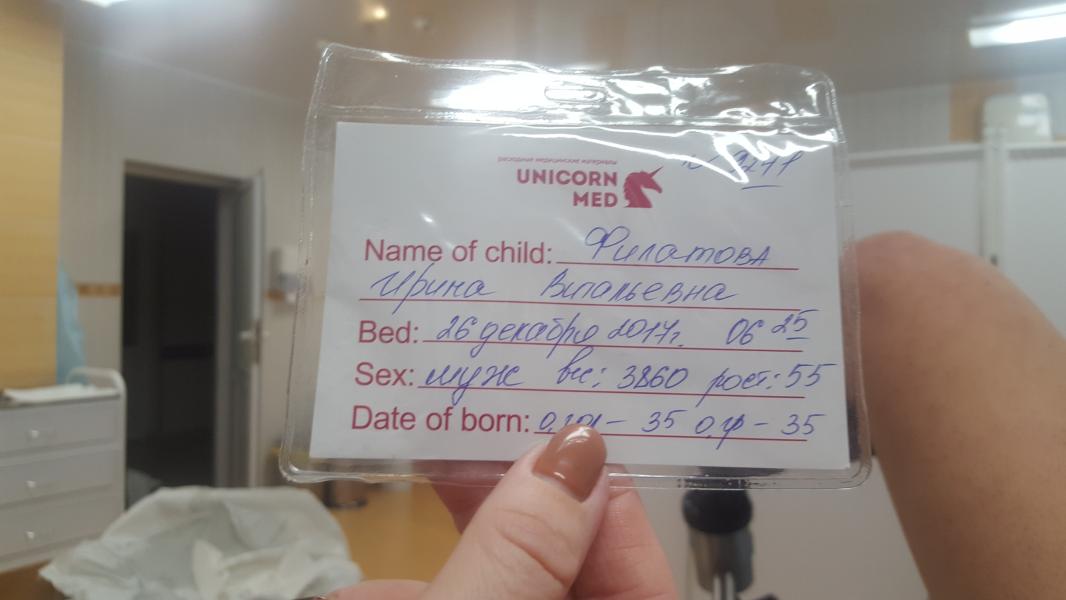 расходные медицинские материалы
UNICORN
MED
Name of child: Филатова
Ирина Витальевна
Bed: 26 декабря 2017г. 06 25
Sex: муж вес: 3860 рост: 55
Date of born: 35 0,гр - 35